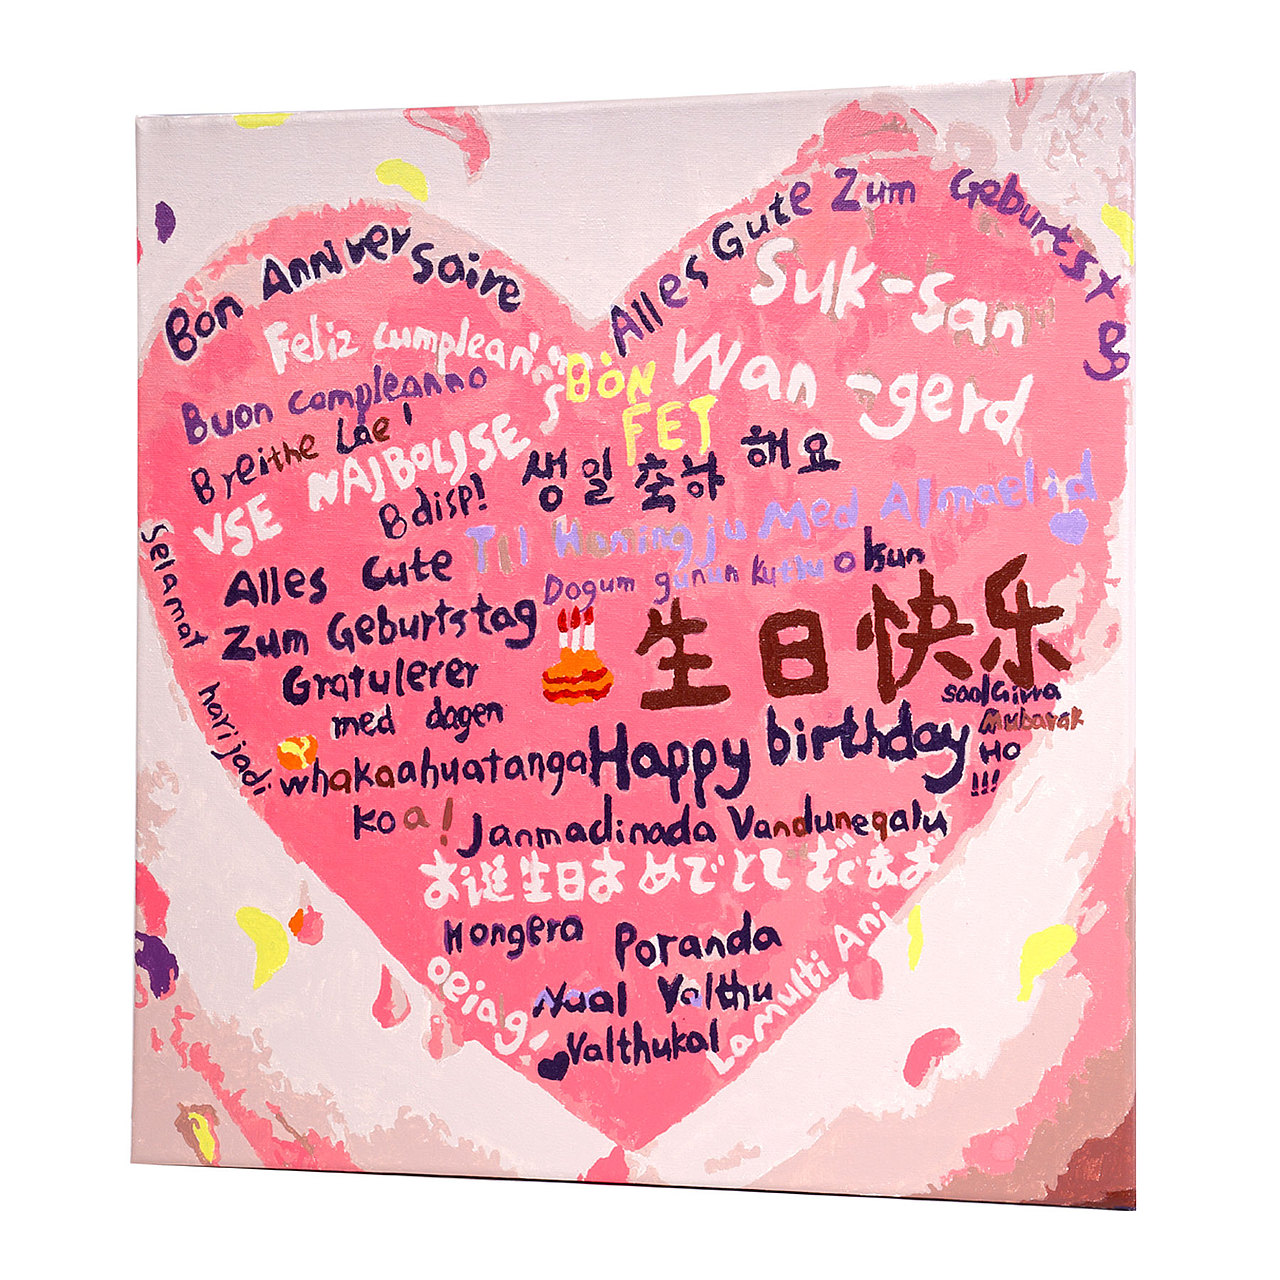 Bon Anniversaire
Alles Gute Zum Geburtstag
Feliz cumplean'n
s
Suk-san
Wan-gerd
BÒN
FET
Buon compleanno
Breithe Lae'
VSE NAJBOLJSE
Bdisp!
생일 축하 해요
Til Hamingju Med Afmaelid
Alles Gute
Zum Geburtstag
Dogum gunun kutlu okun
Selamat
hari jadi
生日快乐
Gratulerer
med dagen
Saal Girra
Mubarak
HO
!!!
Happy birthday
whakaahuatanga
koa!
Janmadinada Vandunegalu
お誕生日おめでとてざごまお
Hongera
Poranda
Naal Valthu
Valthukal
oeiag!
LaMulti Ani